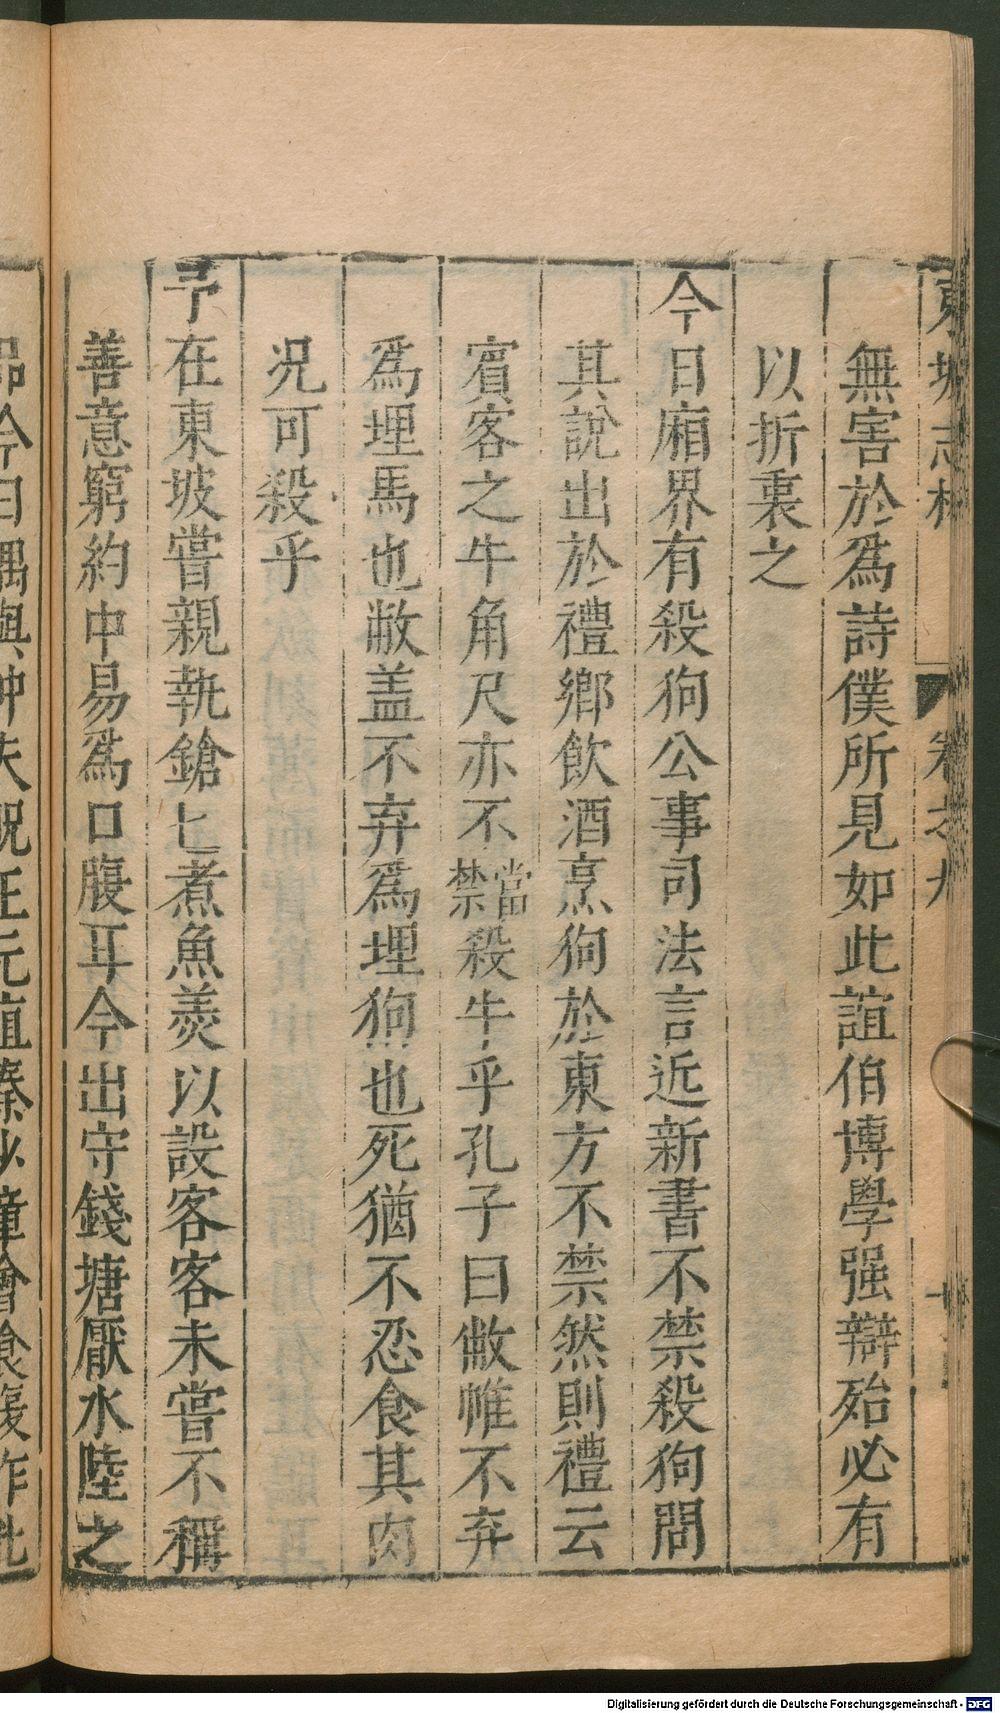 東坡志林 卷之九
無害於爲詩僕所見如此誼伯博學强辯殆必有
以折裏之
今日廂界有殺狗公事司法言近新書不禁殺狗問
其說出於禮鄉飲酒烹狗於東方不禁然則禮云
賓客之牛角尺亦不當禁殺牛乎孔子曰敝帷不弃
爲埋馬也敝盖不弃爲埋狗也死猶不忍食其肉
况可殺乎
予在東坡嘗親執鎗匕煮魚羮以設客客未嘗不稱
善意窮約中易爲口腹耳今出守錢塘厭水陸之
品今日偶與仲夫貺王元直秦少章會食復作此
Digitalisierung gefördert durch die Deutsche Forschungsgemeinschaft - DFG